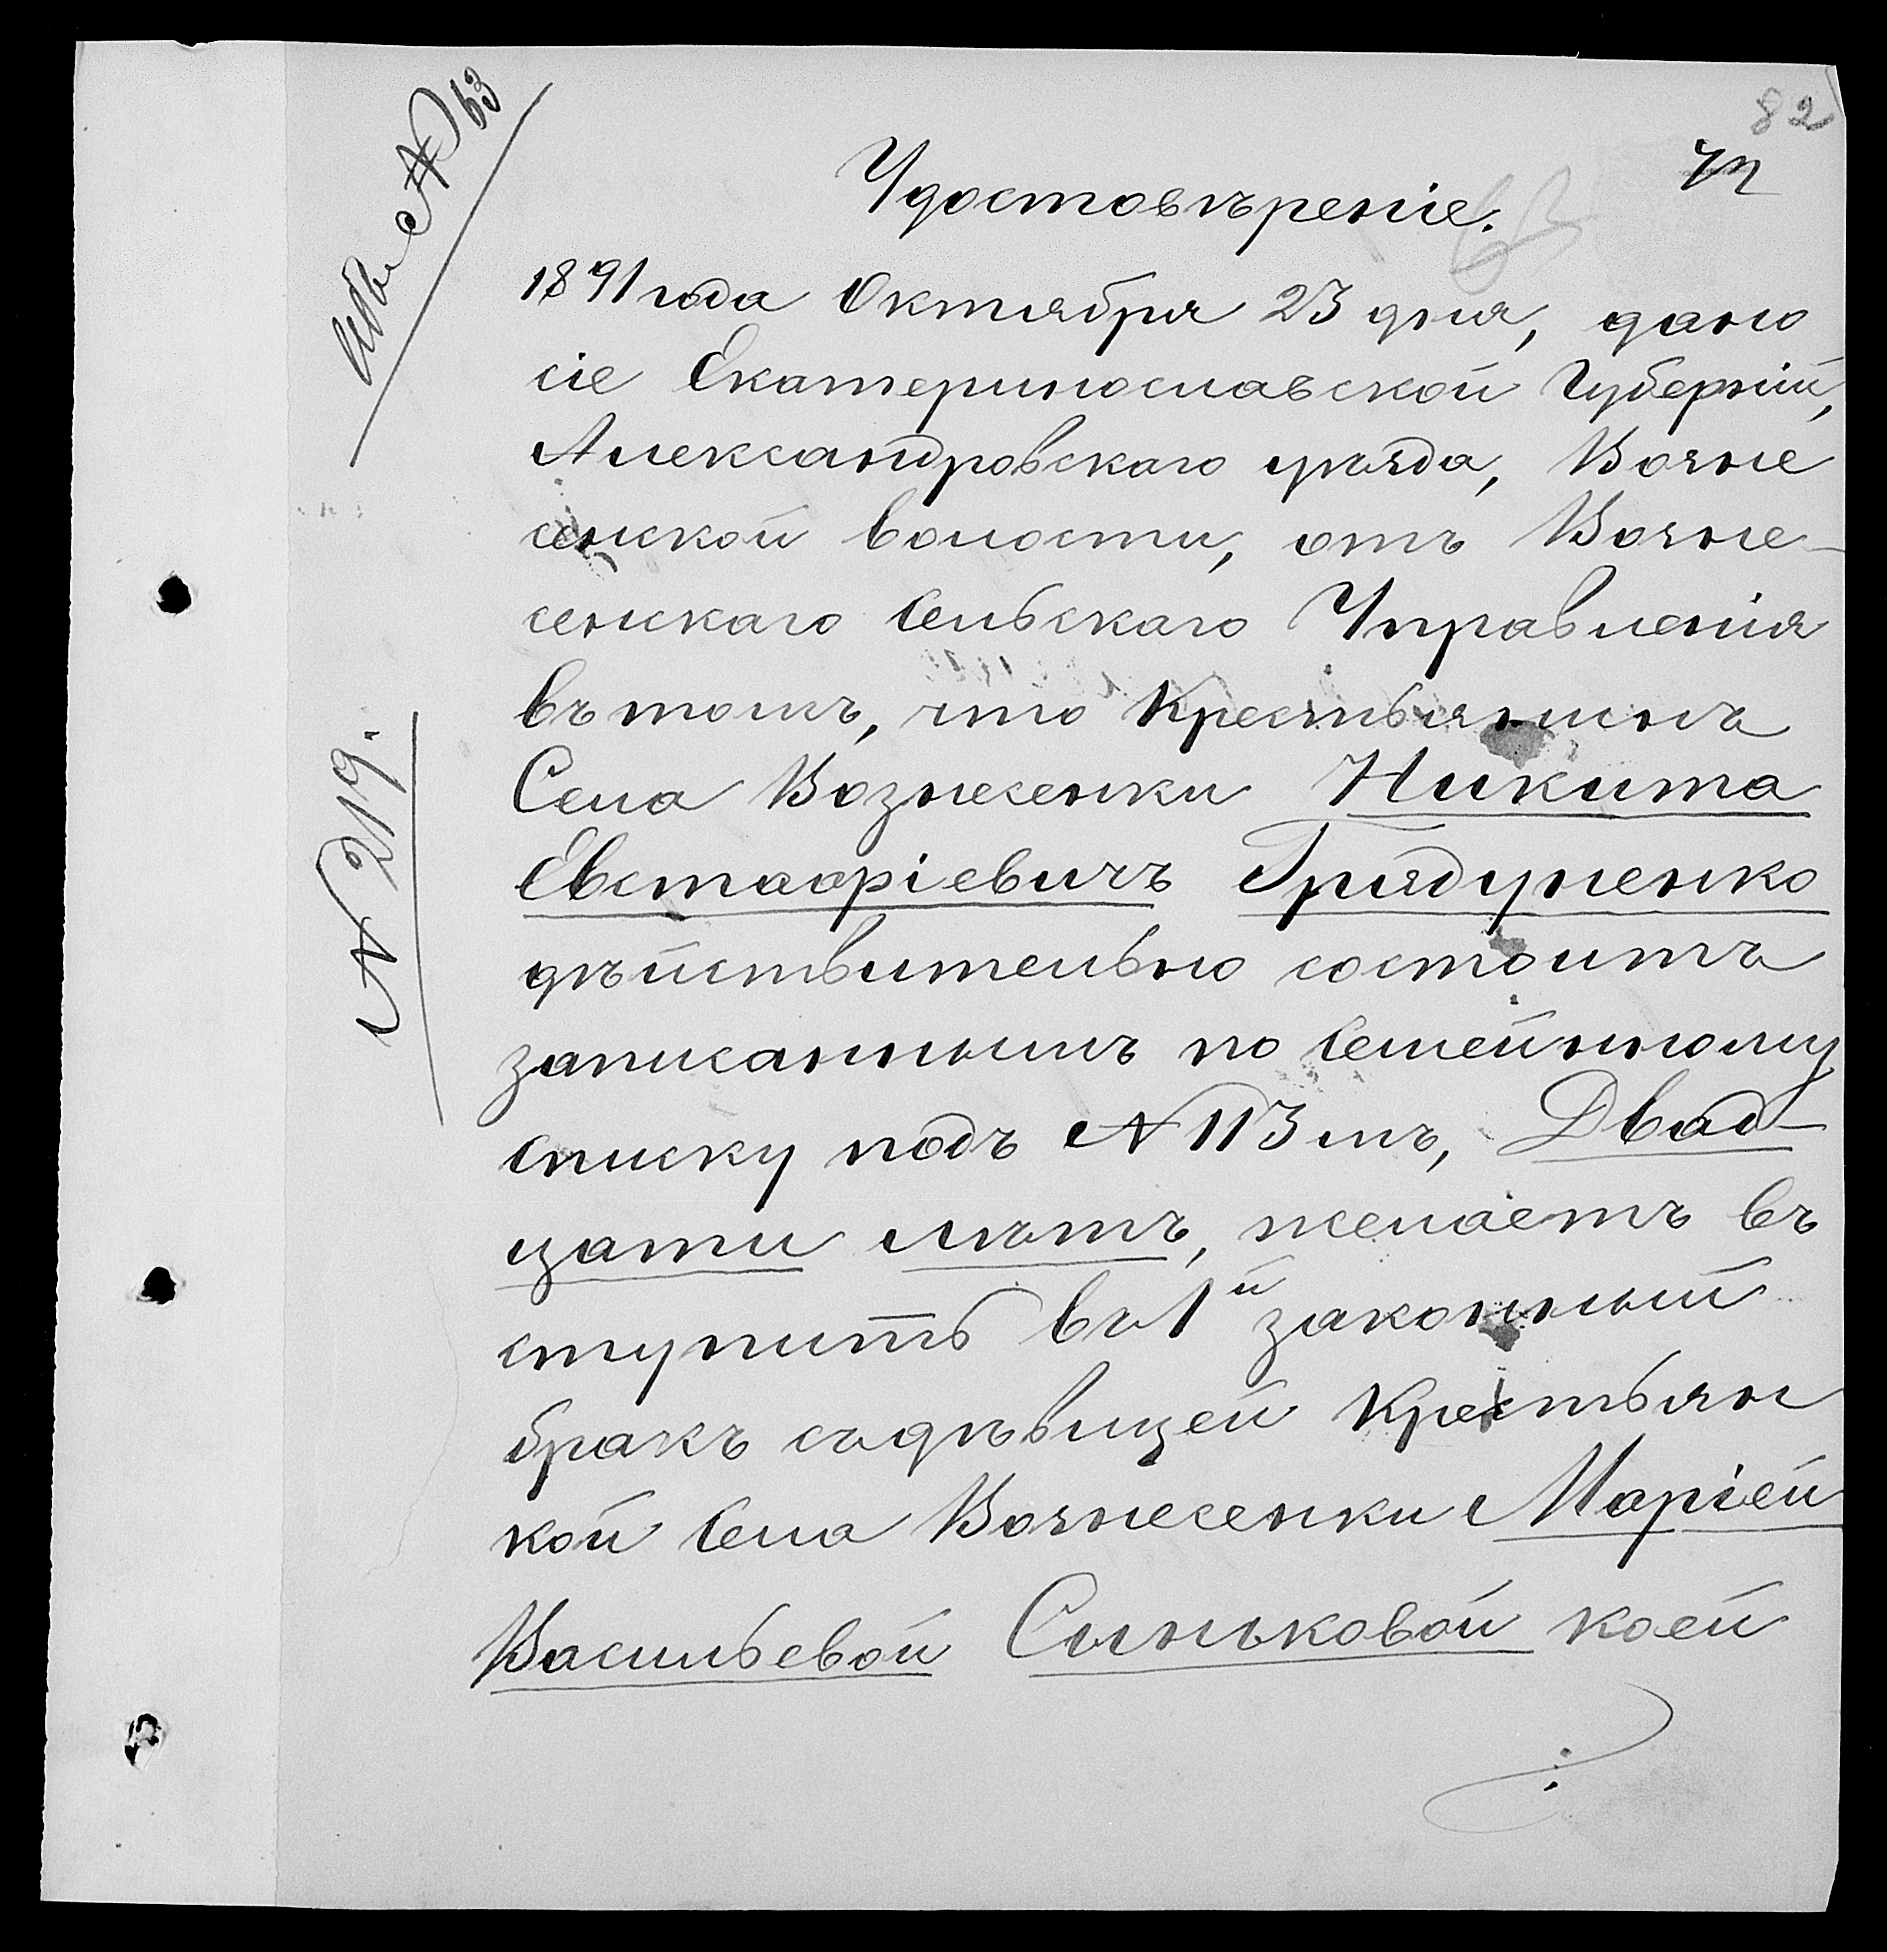 82
№ 63
Удостовѣреніе.
1891 года Октября 23 дня, дано
сіе Екатеринославской Губерніи,
Александровскаго уѣзда, Возне
сенской волости, отъ Возне-
сенскаго Сельскаго Управленія
въ томъ, что Крестьянинъ
Села Вознесенки Никита
Евстафіевичъ Грядуненко
дѣйствительно состоитъ
записаннымъ по Семейному
списку подъ № 113 мъ, Двад-
цати лѣтъ, желаетъ въ
ступить въ 1й законный
бракъ съ дѣвицей Крестьян
кой Села Вознесенки Маріей
Васильевой Синьковой коей
№ 219.